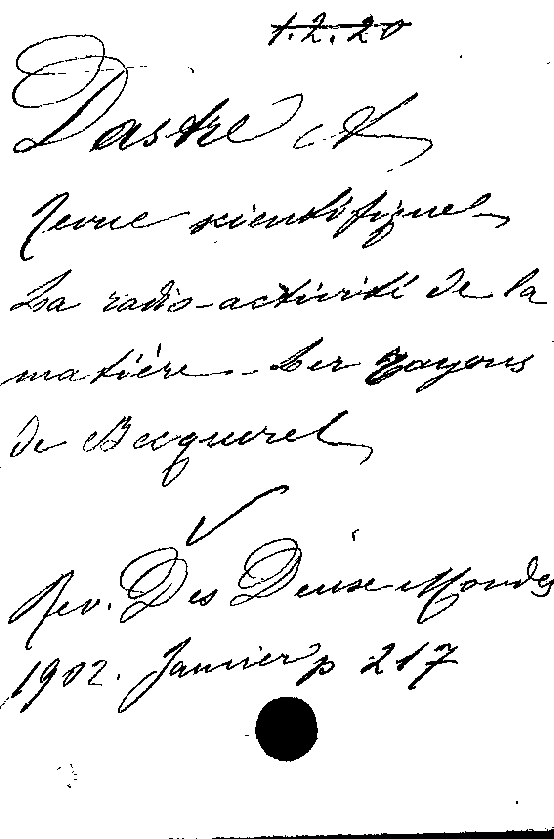 1.2.20
Dastre A
Revue scientifique
La radio-activité de la
matière. Les rayons
de Becquerel
Rev. Des Deux Mondes
1902. Janvier p 217